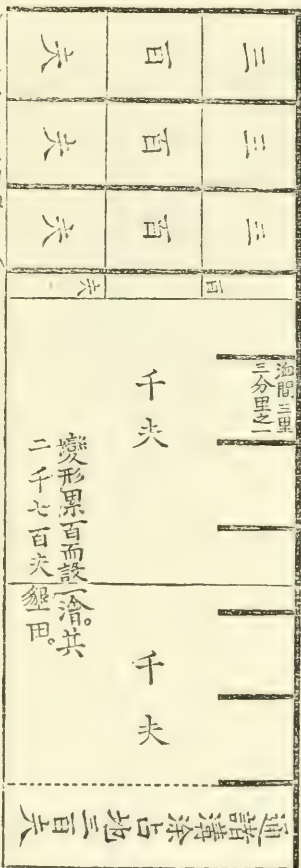 三百夫
三百夫
三百夫
百夫
洫間三里
三分里之一
千夫
變形累百而設一澮。共
二千七百夫墾田。
千夫
通諸溝涂占地三百夫